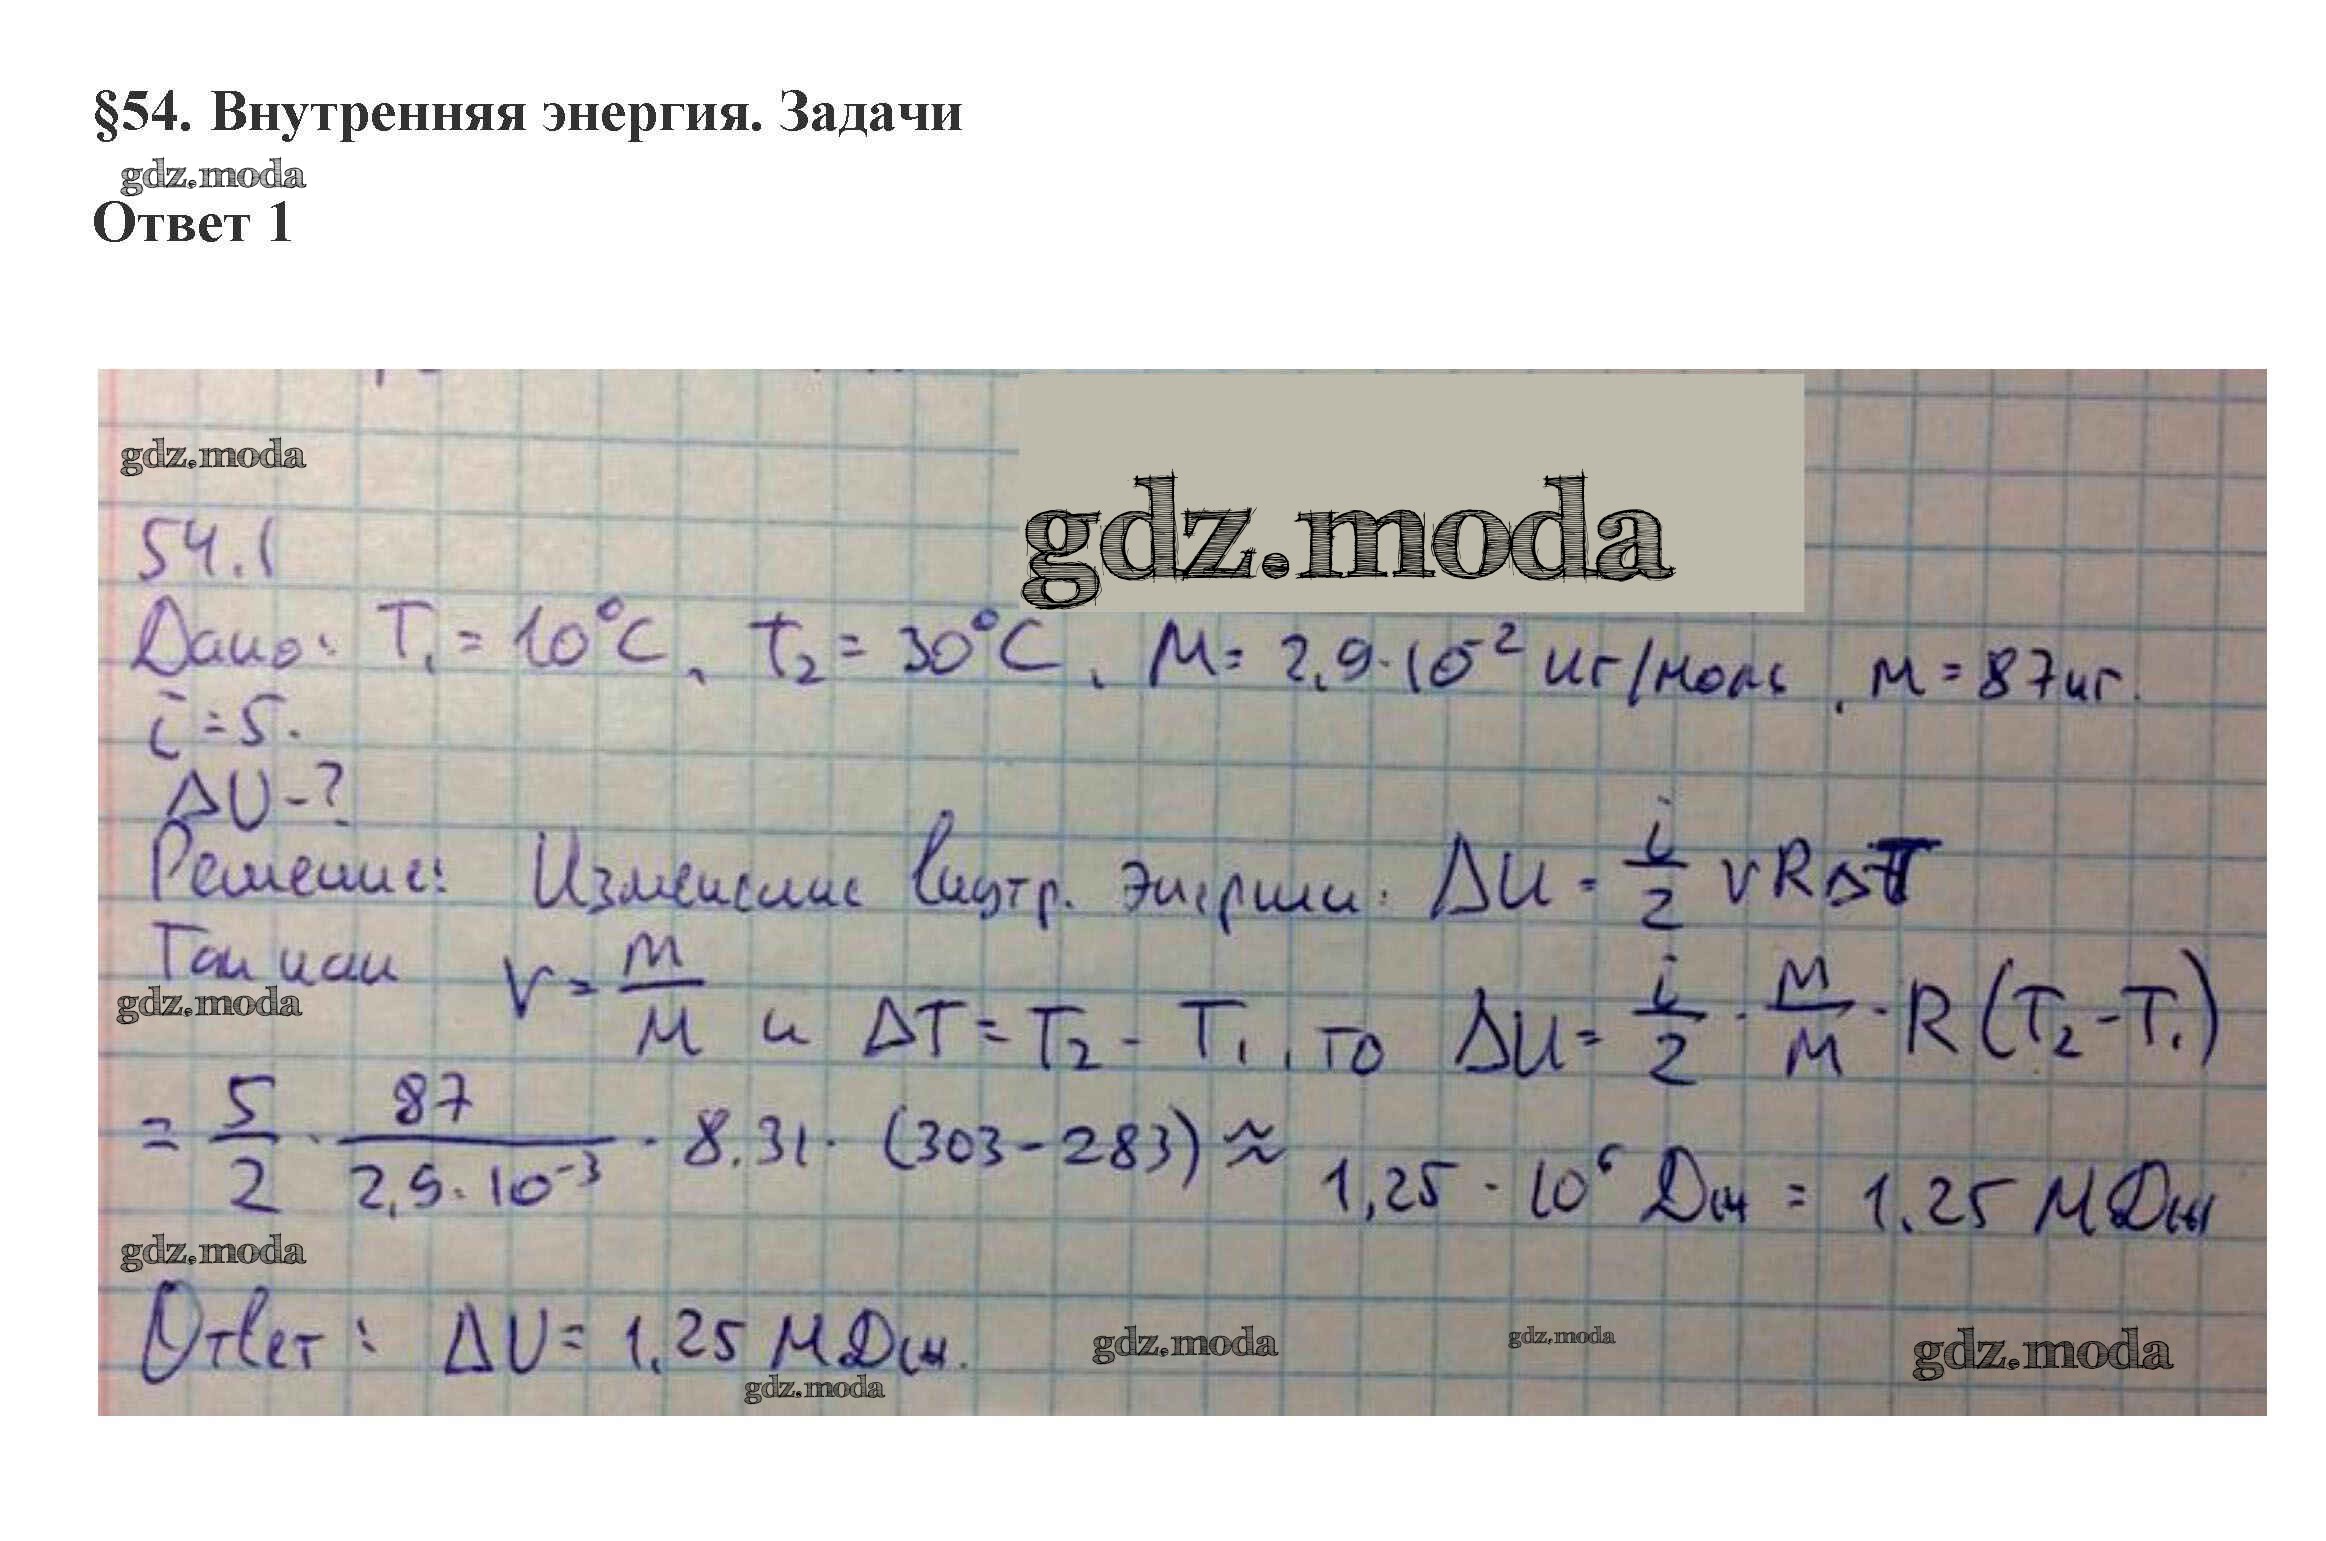 §54. Внутренняя энергия. Задачи
gdz.moda
Ответ 1
gdz.moda
gdz.moda
54.1
Дано: T₁ = 10°C, t₂ = 30°C, M = 2,9·10⁻² кг/моль, m = 87кг.
i = 5.
ΔU - ?
Решение: Изменение внутр. энергии: ΔU = i/2 νRΔT
Так как ν = m/M и ΔT = T₂ - T₁, то ΔU = i/2 · m/M · R (T₂ - T₁)
gdz.moda
= 5/2 · 87/2,9·10⁻³ · 8.31 · (303 - 283) ≈ 1,25 · 10⁶ Дж = 1,25 МДж
gdz.moda
Ответ: ΔU = 1,25 МДж.
gdz.moda
gdz.moda
gdz.moda
gdz.moda